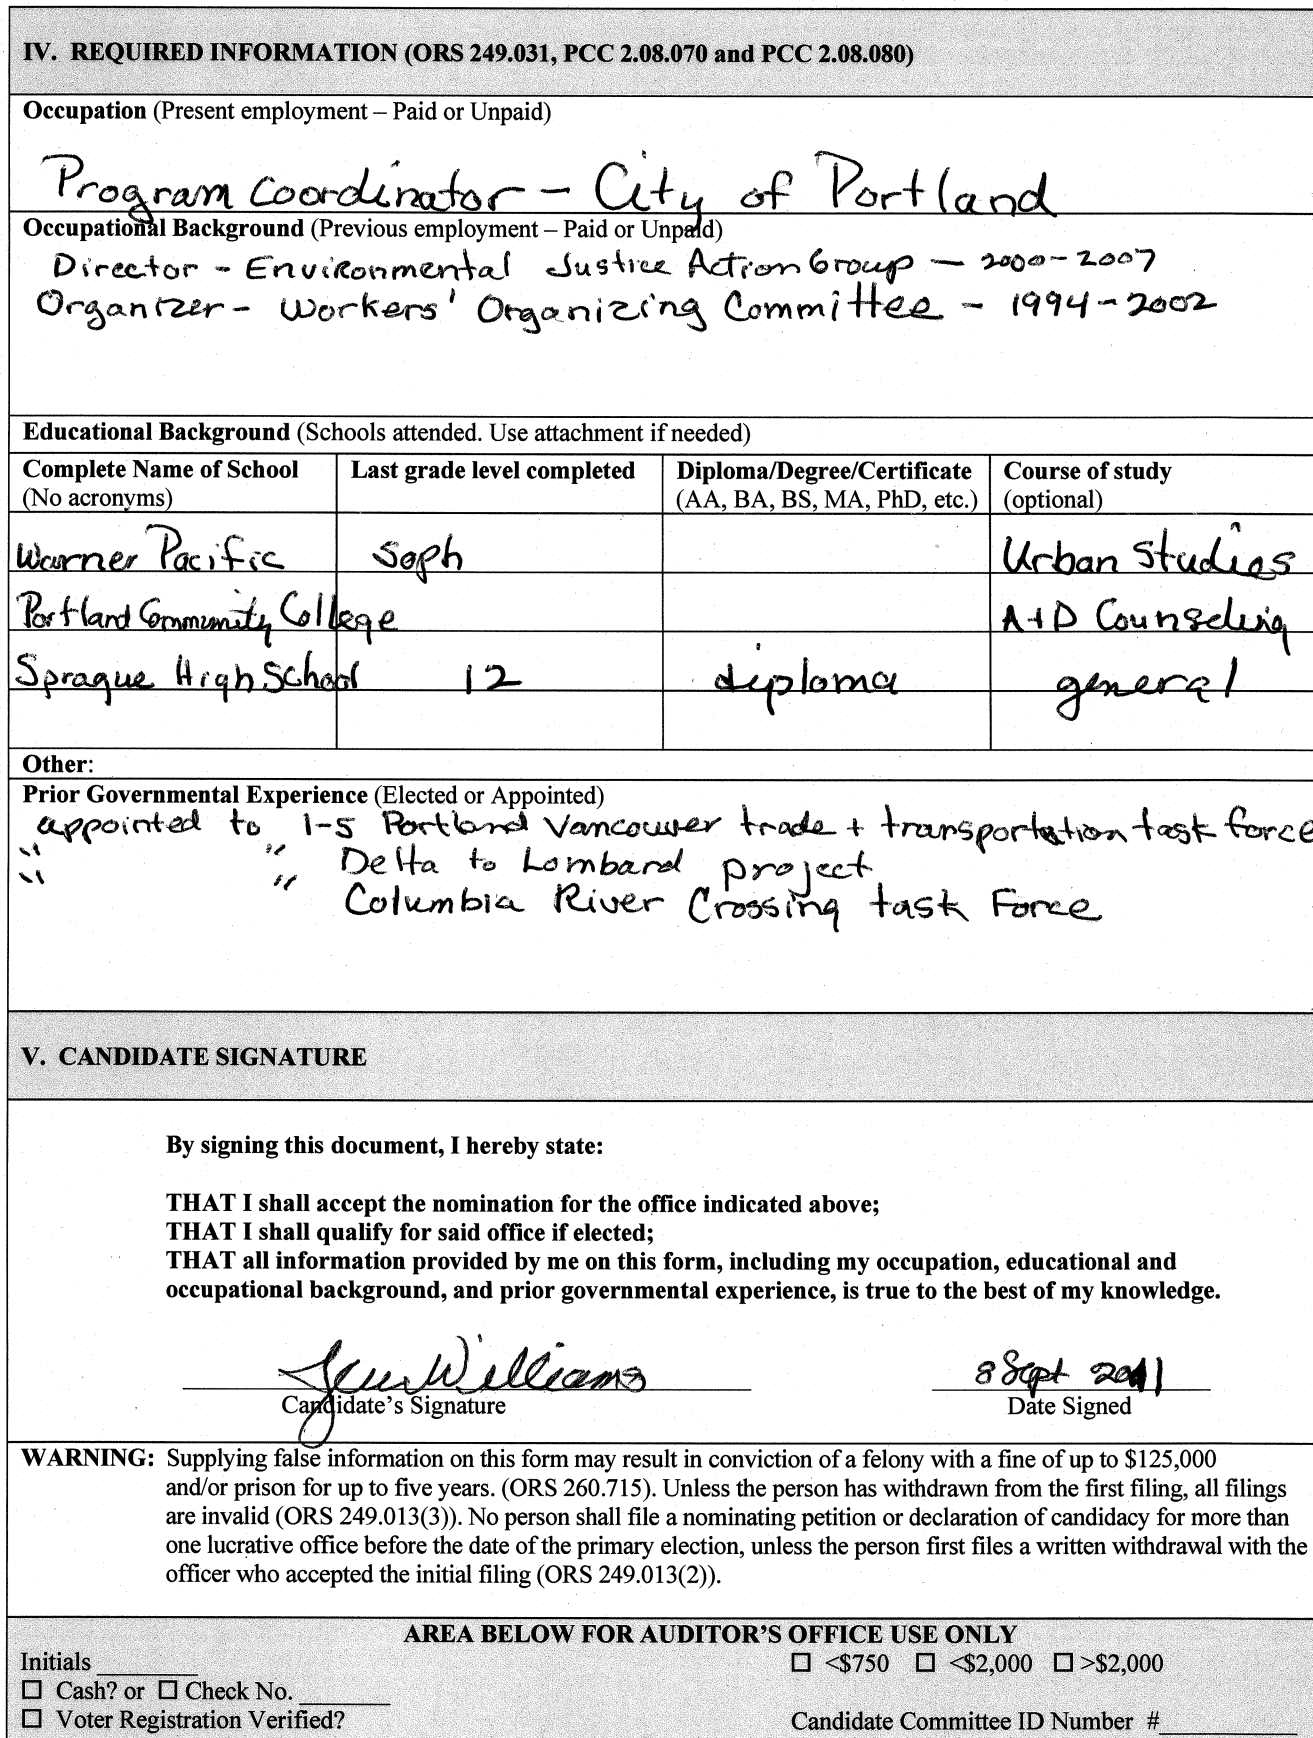 IV. REQUIRED INFORMATION (ORS 249.031, PCC 2.08.070 and PCC 2.08.080)
Occupation (Present employment – Paid or Unpaid)
Program Coordinator - City of Portland
Occupational Background (Previous employment – Paid or Unpaid)
Director - Environmental Justice Action Group - 2000-2007
Organizer - Workers' Organizing Committee - 1994-2002
Educational Background (Schools attended. Use attachment if needed)
Complete Name of School Last grade level completed Diploma/Degree/Certificate Course of study
(No acronyms) (AA, BA, BS, MA, PhD, etc.) (optional)
Warner Pacific Soph Urban Studies
Portland Community College A+D Counseling
Sprague High School 12 diploma general
Other:
Prior Governmental Experience (Elected or Appointed)
appointed to I-5 Portland Vancouver trade + transportation task force
" " Delta to Lombard project
" " Columbia River Crossing task Force
V. CANDIDATE SIGNATURE
By signing this document, I hereby state:
THAT I shall accept the nomination for the office indicated above;
THAT I shall qualify for said office if elected;
THAT all information provided by me on this form, including my occupation, educational and
occupational background, and prior governmental experience, is true to the best of my knowledge.
Jeri Williams 8 Sept 2011
Candidate's Signature Date Signed
WARNING: Supplying false information on this form may result in conviction of a felony with a fine of up to $125,000
and/or prison for up to five years. (ORS 260.715). Unless the person has withdrawn from the first filing, all filings
are invalid (ORS 249.013(3)). No person shall file a nominating petition or declaration of candidacy for more than
one lucrative office before the date of the primary election, unless the person first files a written withdrawal with the
officer who accepted the initial filing (ORS 249.013(2)).
AREA BELOW FOR AUDITOR'S OFFICE USE ONLY
Initials ________ ☐ <$750 ☐ <$2,000 ☐ >$2,000
☐ Cash? or ☐ Check No. ________
☐ Voter Registration Verified? Candidate Committee ID Number #____________